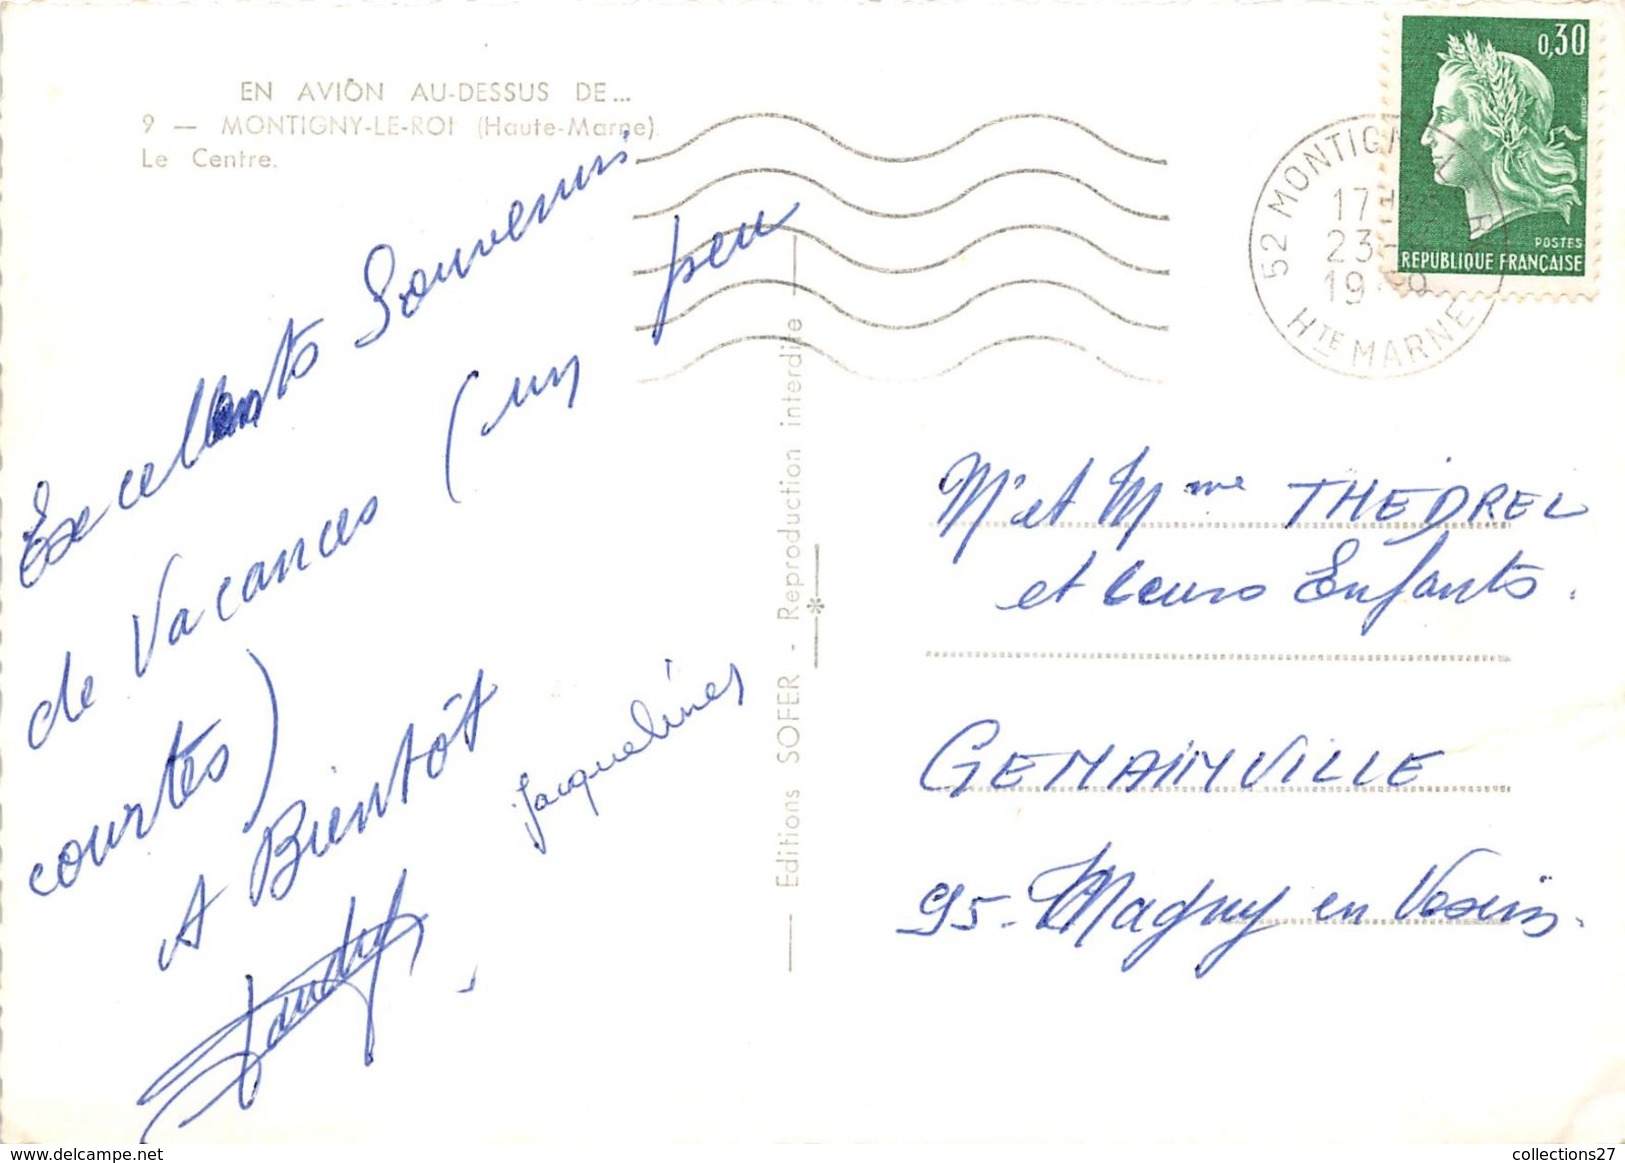 EN AVION AU-DESSUS DE...
9 — MONTIGNY-LE-ROI (Haute-Marne).
Le Centre.
Excellents Souvenirs
de Vacances (un peu
courtes)
A Bientôt
Jacquelines
Editions SOFER - Reproduction interdite
0,30
POSTES
REPUBLIQUE FRANÇAISE
52 MONTIGN
17 H
23-
19
HTE MARNE
Mr et Mme THEDREL
et leurs Enfants.
GENAINVILLE
95. Magny en Vexin.
collections27